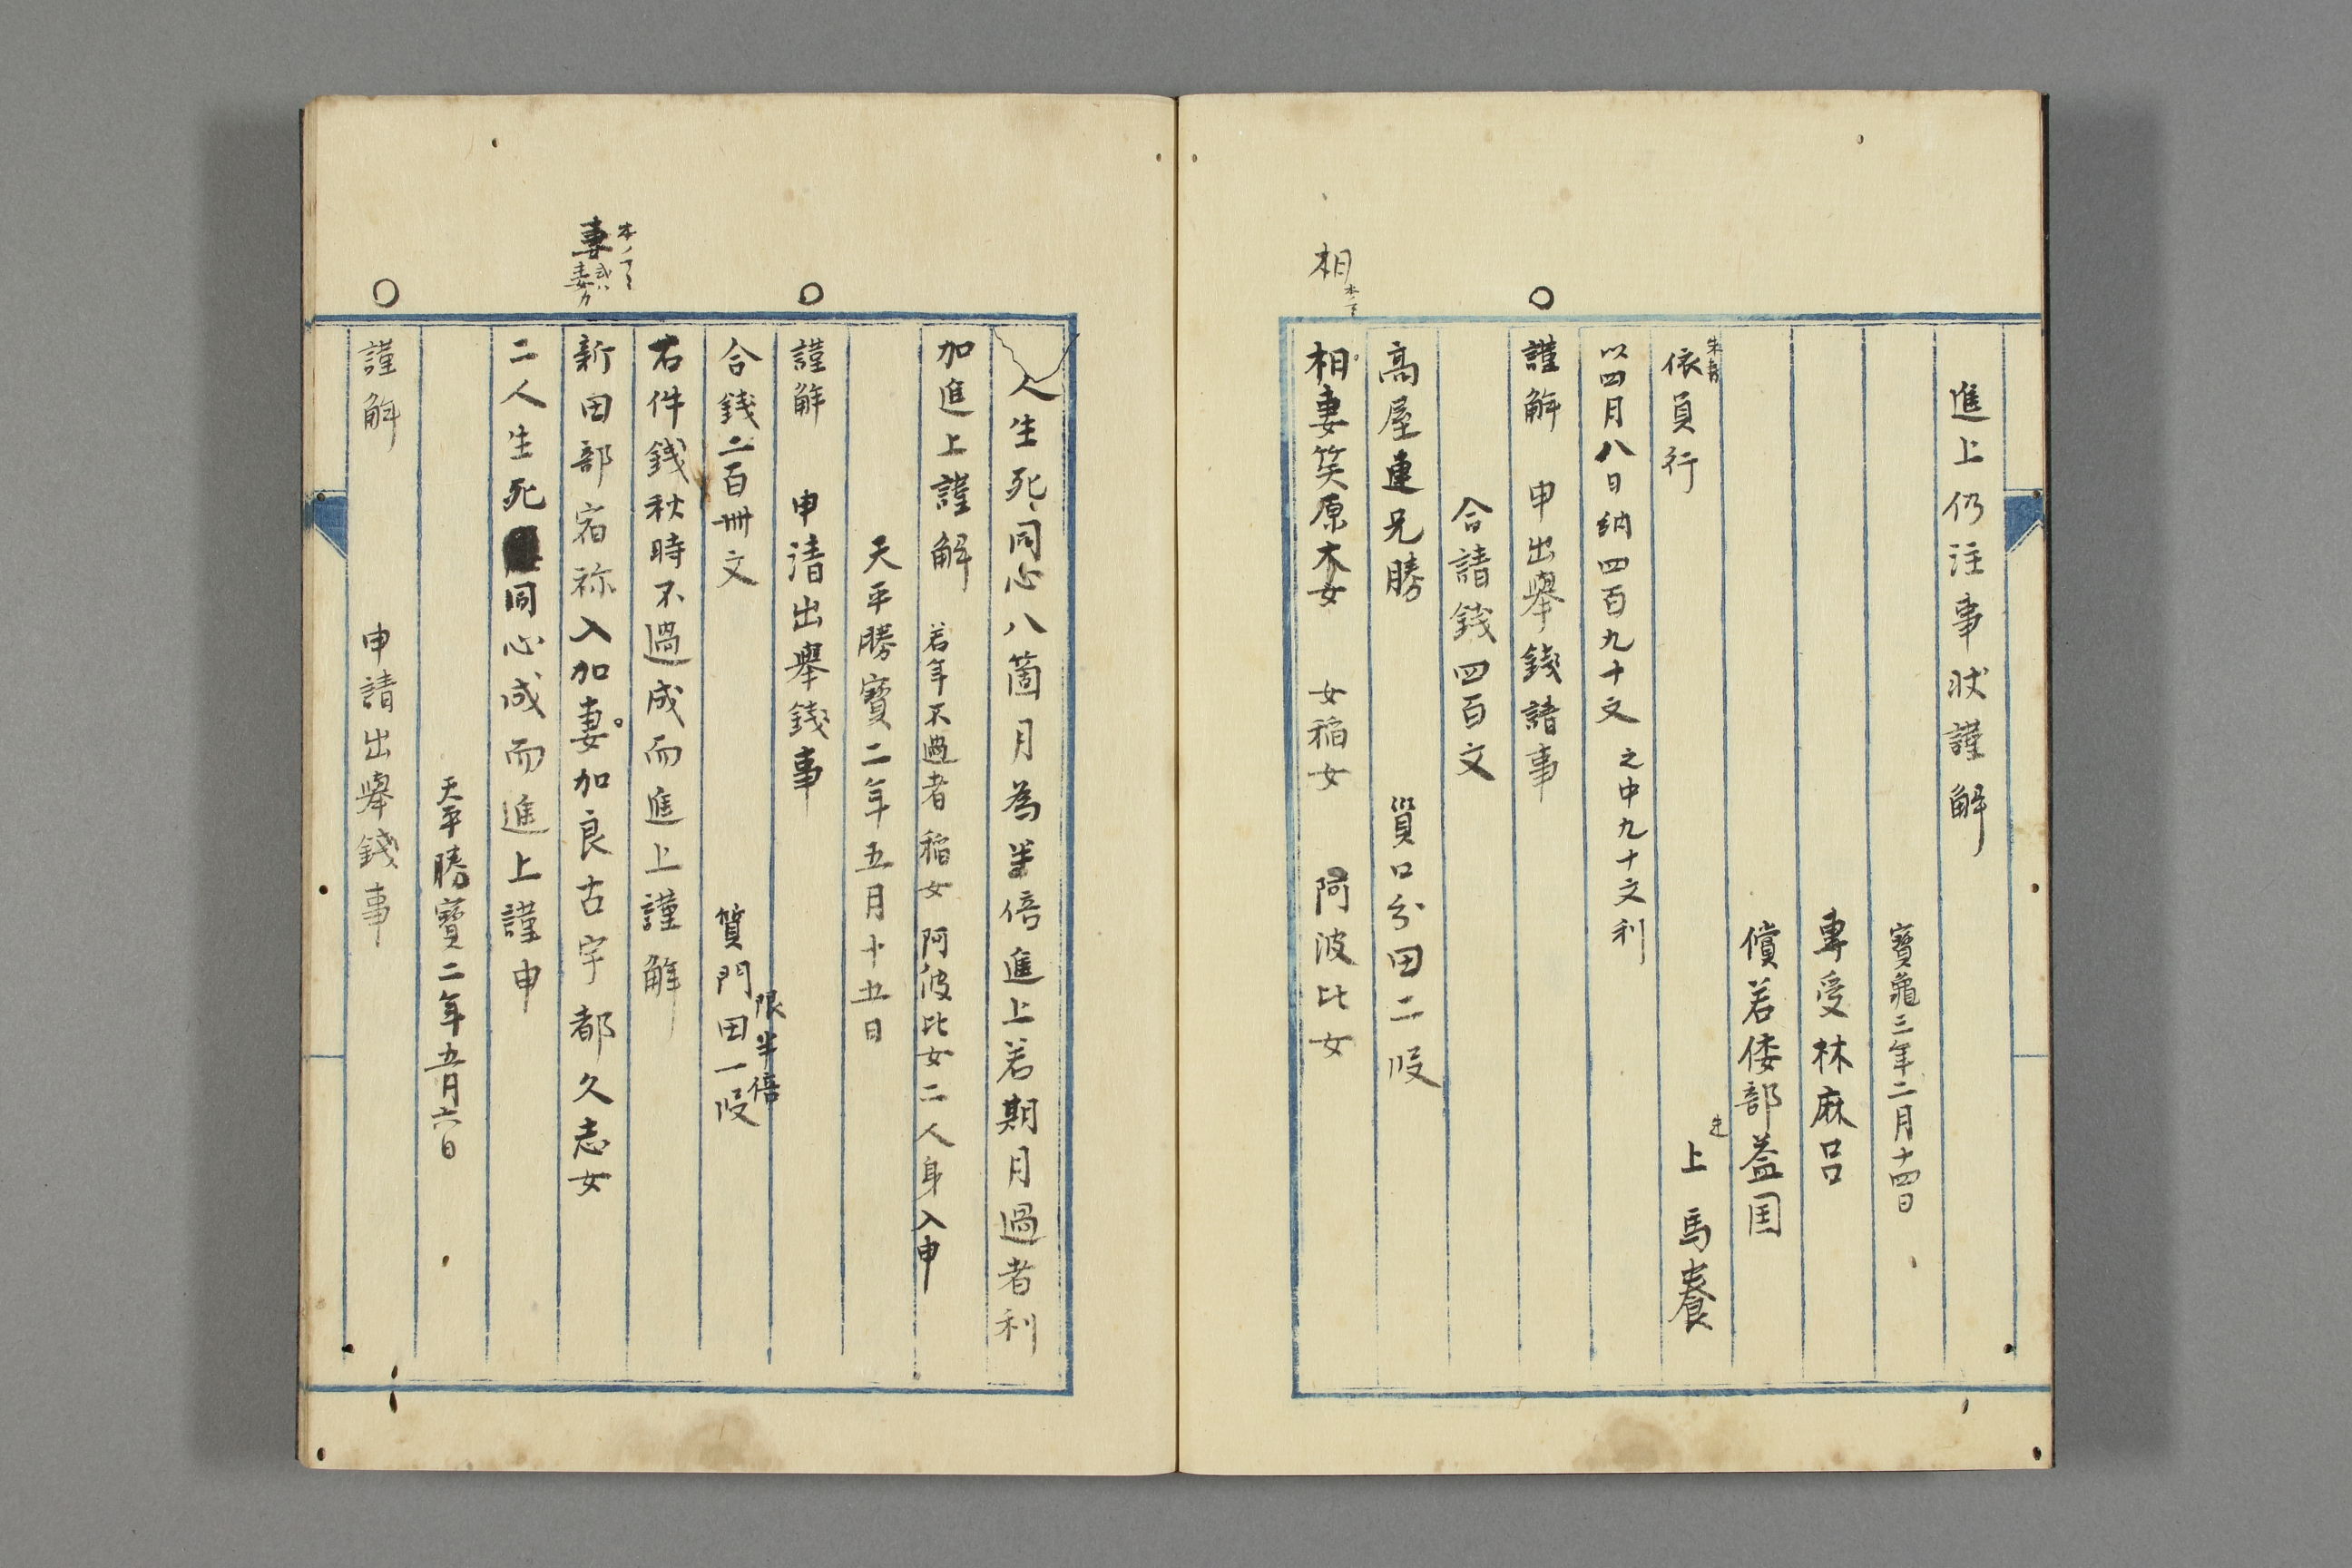 進上仍注事状謹解
寶龜三年二月十四日
專受林麻呂
償若倭部益国
朱書
依員行
上馬養
以四月八日納四百九十文 之中九十文利
謹解 申出舉錢請事
合請錢四百文
高屋連兄勝 質口分田二段
相 本ノマヽ
相妻笑原木女 女稲女 阿波比女
人生死同心八箇月為半倍進上若期月過者利
加進上謹解 若年不過者稲女阿波比女二人身入申
天平勝寶二年五月十五日
謹解 申請出舉錢事
限半倍
合錢二百卌文 質門田一段
右件錢秋時不過成而進上謹解
本ノマヽ
妻
新田部宿祢入加妻加良古宇都久志女
二人生死同心成而進上謹申
天平勝寶二年五月六日
謹解 申請出舉錢事